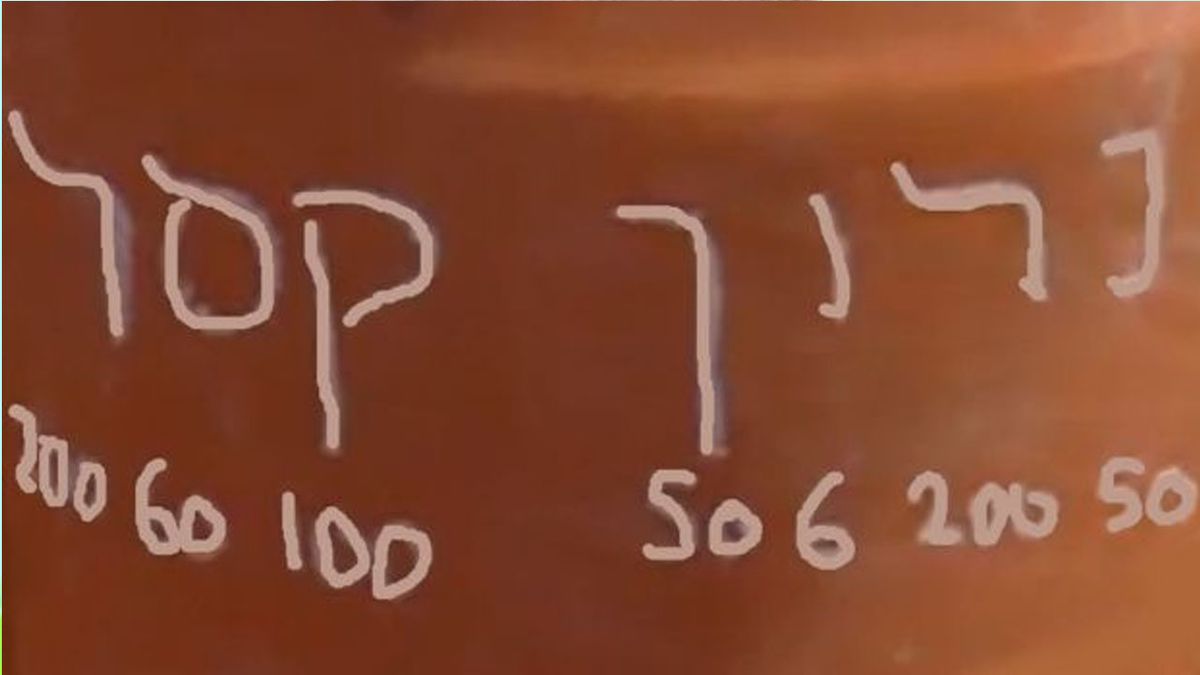 נרון קסר
200 60 100 50 6 200 50